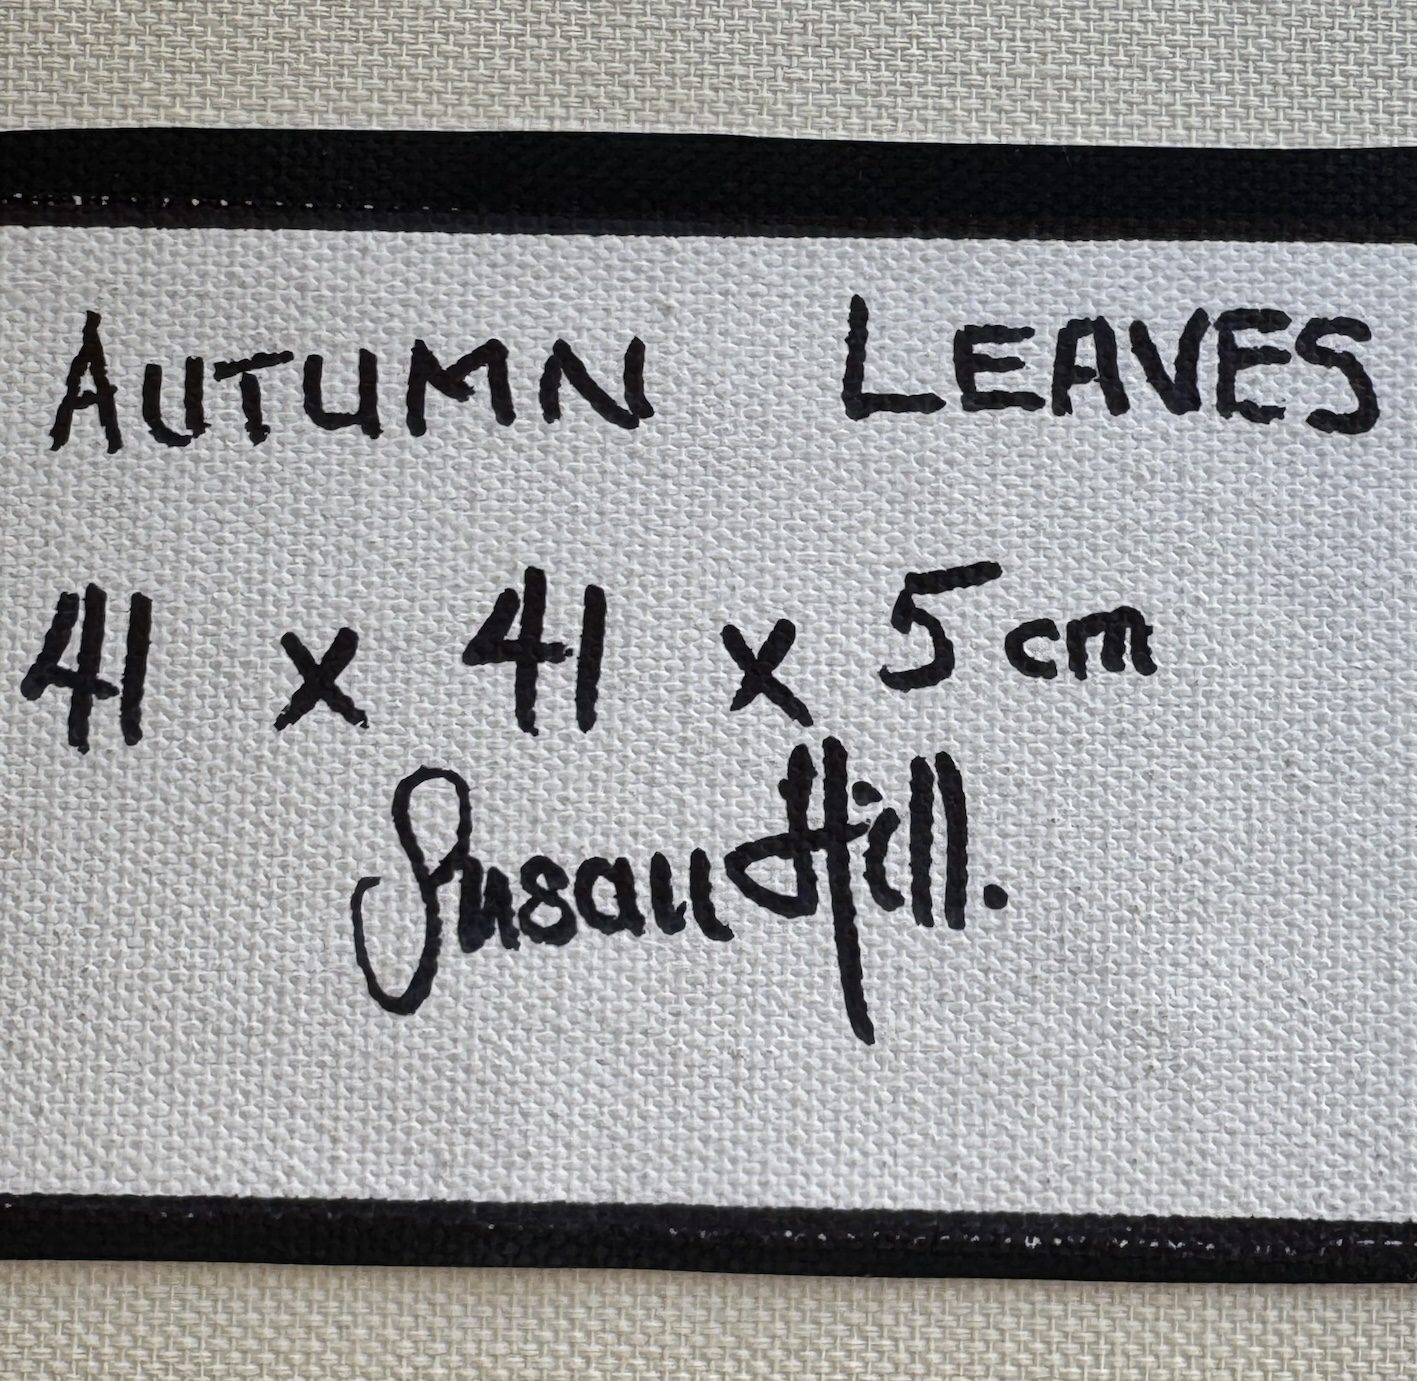 AUTUMN LEAVES
41 x 41 x 5 cm
Susan Hill.